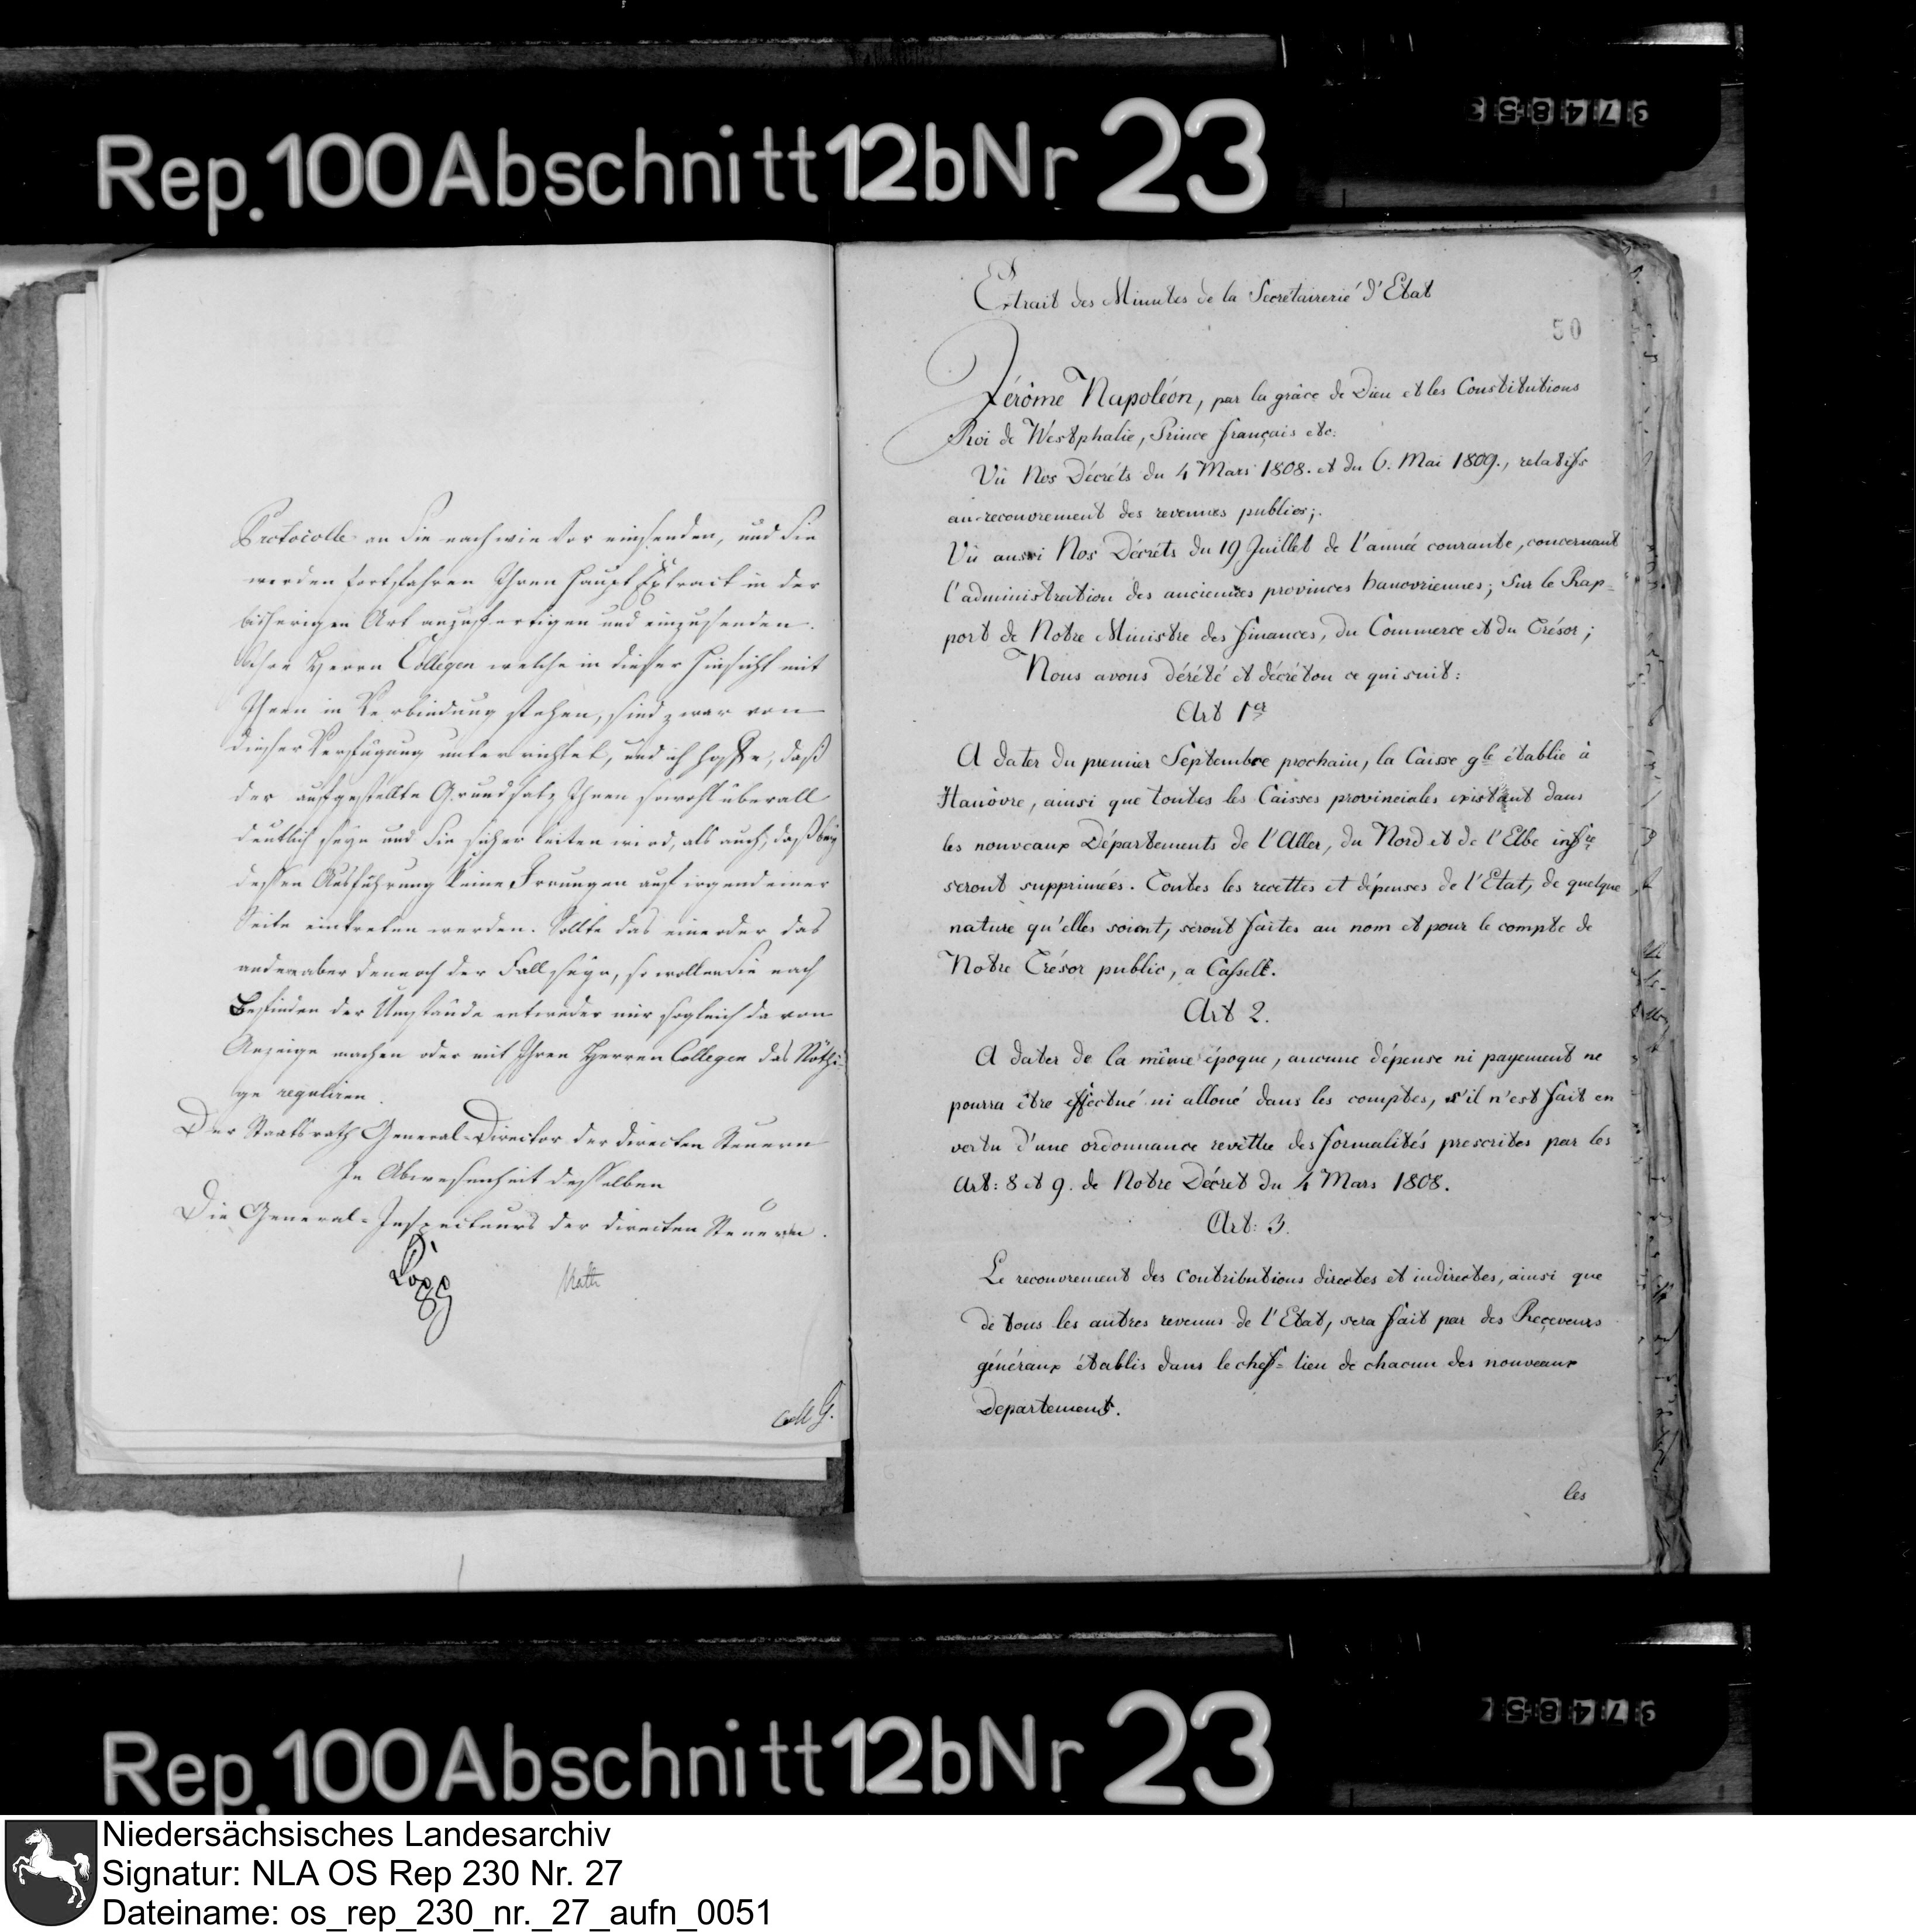 Rep. 100 Abschnitt 12b Nr 23
Protocolle an Sie nach wie vor einsenden, und Sie
werden fortfahren Ihren Haupt Extract in der
bisherigen Art anzufertigen und einzusenden.
Ihre Herrn Collegen welche in dieser Hinsicht mit
Ihnen in Verbindung stehen, sind zwar von
dieser Verfügung unterrichtet, und ich hoffe, daß
der aufgestellte Grundsatz Ihnen sowohl überall
deutlich seyn und Sie sicher leiten wird, als auch, daß bey
dessen Ausführung keine Irrungen auf irgend einer
Seite eintreten werden. Sollte das eine oder das
andere aber dennoch der Fall seyn, so wollen Sie nach
Befinden der Umstände entweder mir sogleich davon
Anzeige machen oder mit Ihren Herren Collegen das Nöthi-
ge reguliren.
Der Staatsrath General-Director der directen Steuern
In Abwesenheit desselben
Die General-Inspecteurs der directen Steuern.
Extrait des Minutes de la Secrétairerié d'Etat
50
Jérôme Napoléon, par la grâce de Dieu et les Constitutions
Roi de Westphalie, Prince français etc.
Vû Nos Décréts du 4 Mars 1808. et du 6. Mai 1809., relatifs
au recouvrement des revenues publics;
Vû aussi Nos Décréts du 19 Juillet de l'année courante, concernant
l'administration des anciennes provinces hanovriennes; Sur le Rap-
port de Notre Ministre des finances, du Commerce et du Trésor;
Nous avons dérété et décréton ce qui suit:
Art 1er
A dater du premier Septembre prochain, la Caisse gle établie à
Hanôvre, ainsi que toutes les Caisses provinciales existant dans
les nouveaux Départements de l'Aller, du Nord et de l'Elbe infre
seront supprimées. Toutes les recettes et dépenses de l'Etat, de quelque
nature qu'elles soient, seront faites au nom et pour le compte de
Notre Trésor public, a Cassell.
Art 2.
A dater de la même époque, aucune dépense ni payement ne
pourra être effectué ni alloué dans les comptes, s'il n'est fait en
vertu d'une ordonnance revêttu des formalités prescrites par les
Art: 8 et 9. de Notre Décret du 4 Mars 1808.
Art: 3.
Le recouvrement des contributions directes et indirectes, ainsi que
de tous les autres revenus de l'Etat, sera fait par des Reçeveurs
généraux établis dans le chef-lieu de chacun des nouveaux
Departement.
les
Rep. 100 Abschnitt 12b Nr 23
Niedersächsisches Landesarchiv
Signatur: NLA OS Rep 230 Nr. 27
Dateiname: os_rep_230_nr._27_aufn_0051